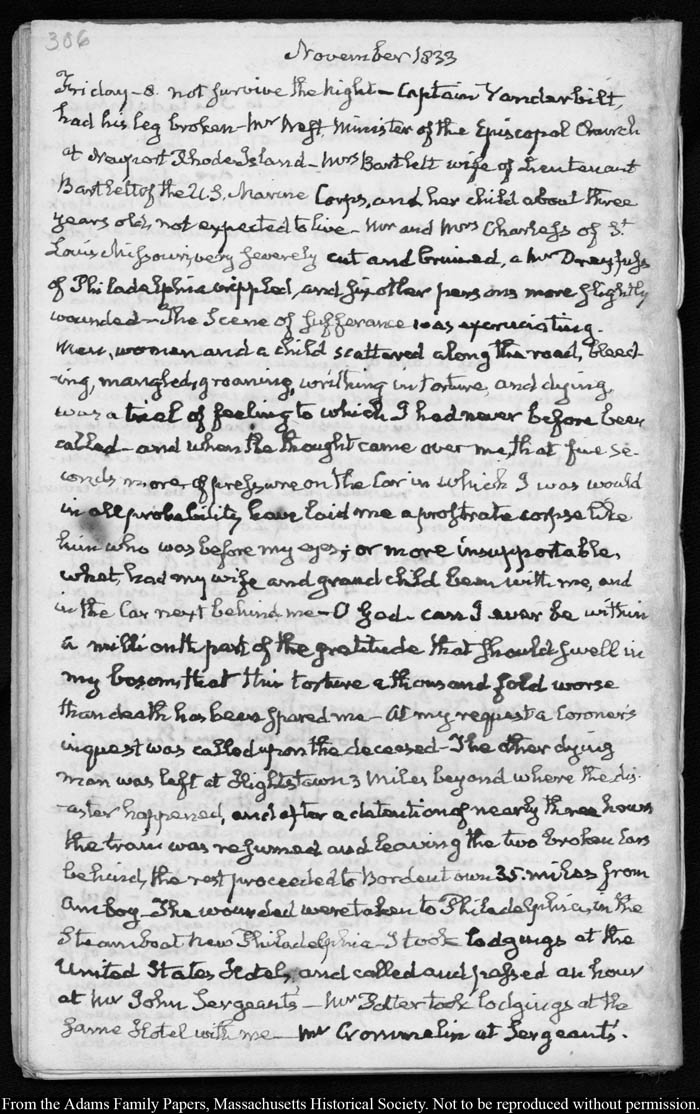 306
November 1833
Friday – 8. not survive the night – Captain Vanderbilt,
had his leg broken – Mr West, Minister of the Episcopal Church
at Newport Rhode Island – Mrs Bartlett wife of Lieutenant
Bartlett of the U.S. Marine Corps, and her child about three
years old, not expected to live – Mr and Mrs Charless of St
Louis Missouri, very severely cut and bruised, a Mr Dreyfuss
of Philadelphia crippled, and six other persons more slightly
wounded – The Scene of sufferance was excruciating.
Men, women and a child scattered along the road, bleed-
-ing, mangled, groaning, writhing in torture, and dying,
was a trial of feeling to which I had never before been
called – and when the thought came over me, that five se-
conds more, of pressure on the Car in which I was would
in all probability have laid me a prostrate corpse like
him who was before my eyes; or more insupportable,
what, had my wife and grandchild been with me, and
in the Car next behind me – O God can I ever be within
a millionth part of the gratitude that should swell in
my bosom, that this torture a thousand fold worse
than death has been spared me – At my request a Coroner's
inquest was called upon the deceased – The other dying
man was left at Hightstown 3 miles beyond where the dis-
-aster happened, and after a detention of nearly three hours
the train was resumed and leaving the two broken Cars
behind, the rest proceeded to Bordentown 35. miles from
Amboy – The wounded were taken to Philadelphia, in the
Steamboat New Philadelphia – I took lodgings at the
United States Hotel, and called and passed an hour
at Mr John Sergeant's – Mr Potter took lodgings at the
same Hotel with me – Mr Crommelin at Sergeant's.
From the Adams Family Papers, Massachusetts Historical Society. Not to be reproduced without permission.